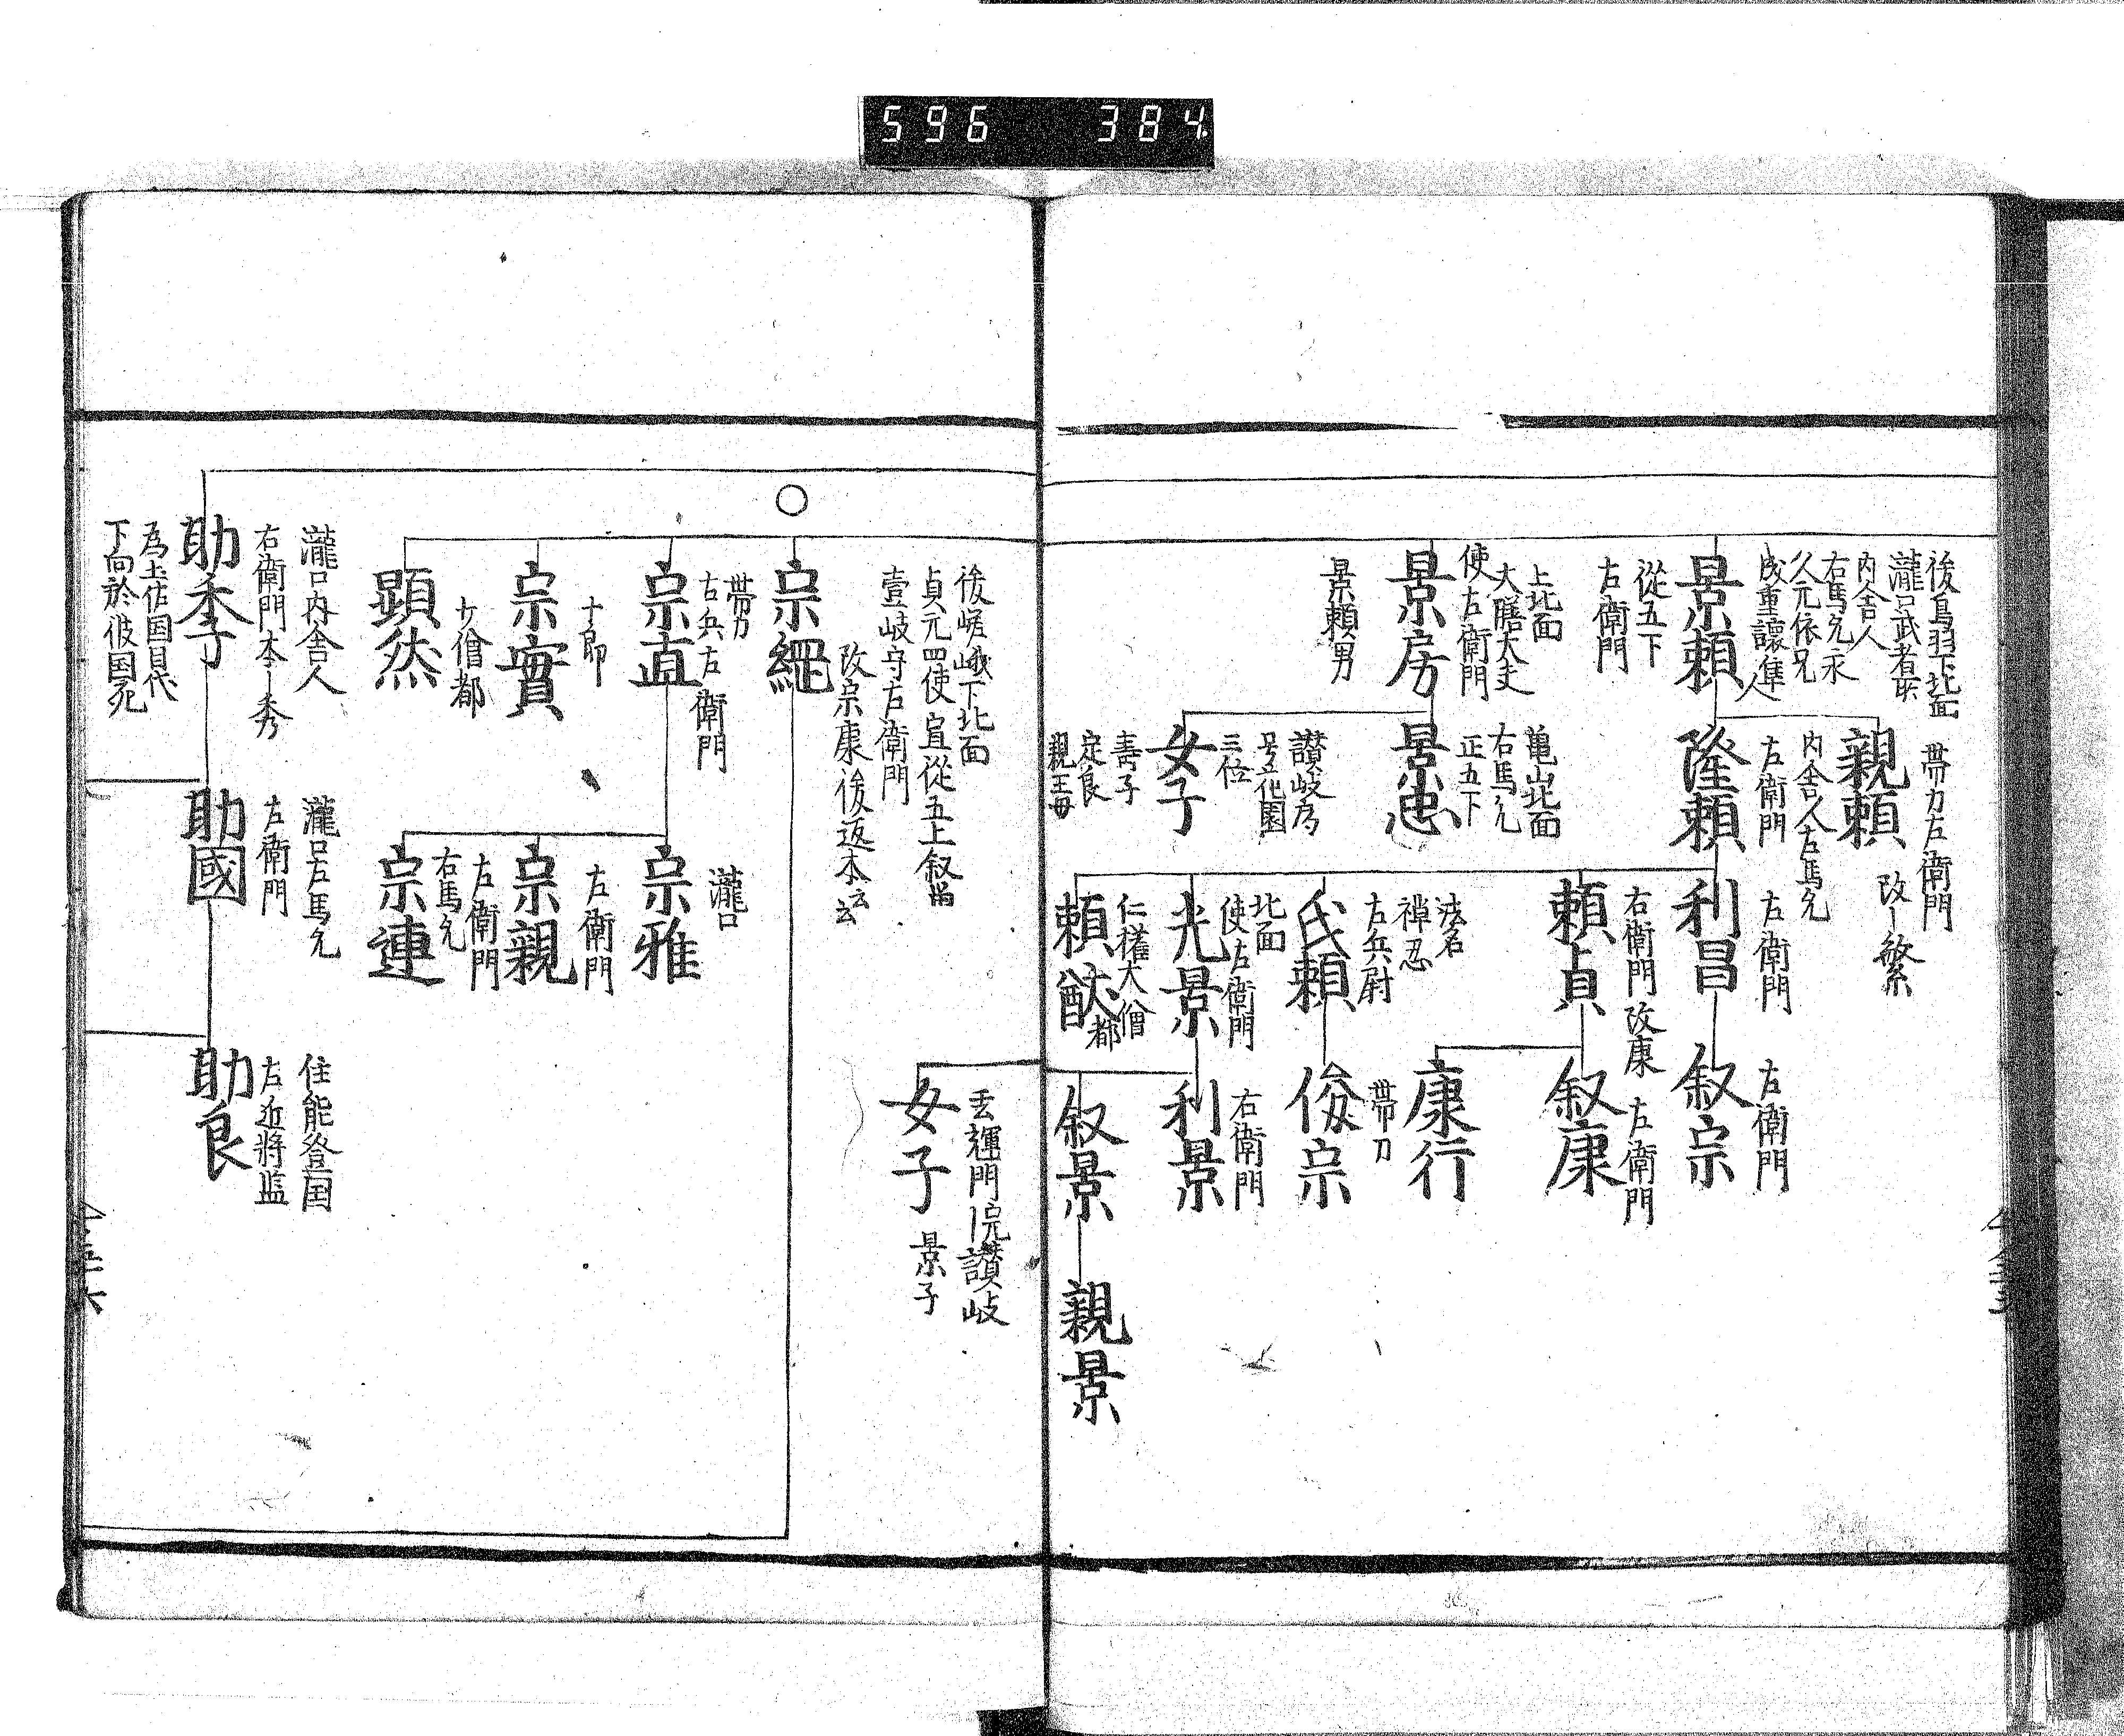 596 384
後鳥羽下北面
瀧口武者所
内舎人
右馬允承
久元依兄
成重譲隼人
景頼
従五下
右衛門
上北面
大膳大夫
使左衛門
景房
景頼男
帯刀左衛門
親頼
改繁
内舎人左馬允
左衛門
隆頼
亀山北面
右馬允
正五下
景忠
讃岐局
号五花園
三位
女子
寿子
定良
親王母
左衛門
利昌
右衛門改康
頼貞
法名
禅忍
左兵尉
氏頼
北面
使左衛門
光景
仁権大僧都
頼猷
左衛門
叙宗
左衛門
叙康
康行
帯刀
俊宗
右衛門
利景
叙景
親景
玄輝門院讃岐
女子
景子
後嵯峨下北面
貞元四使宣従五上叙留
壹岐守左衛門
改宗康後返本云云
宗縄
帯刀
右兵左衛門
宗直
十郎
宗實
少僧都
顕然
瀧口
宗雅
左衛門
宗親
左衛門
右馬允
宗連
瀧口内舎人
右衛門本秀
助季
為土佐国目代
下向於彼国死
瀧口左馬允
左衛門
助國
住能登国
左近将監
助良